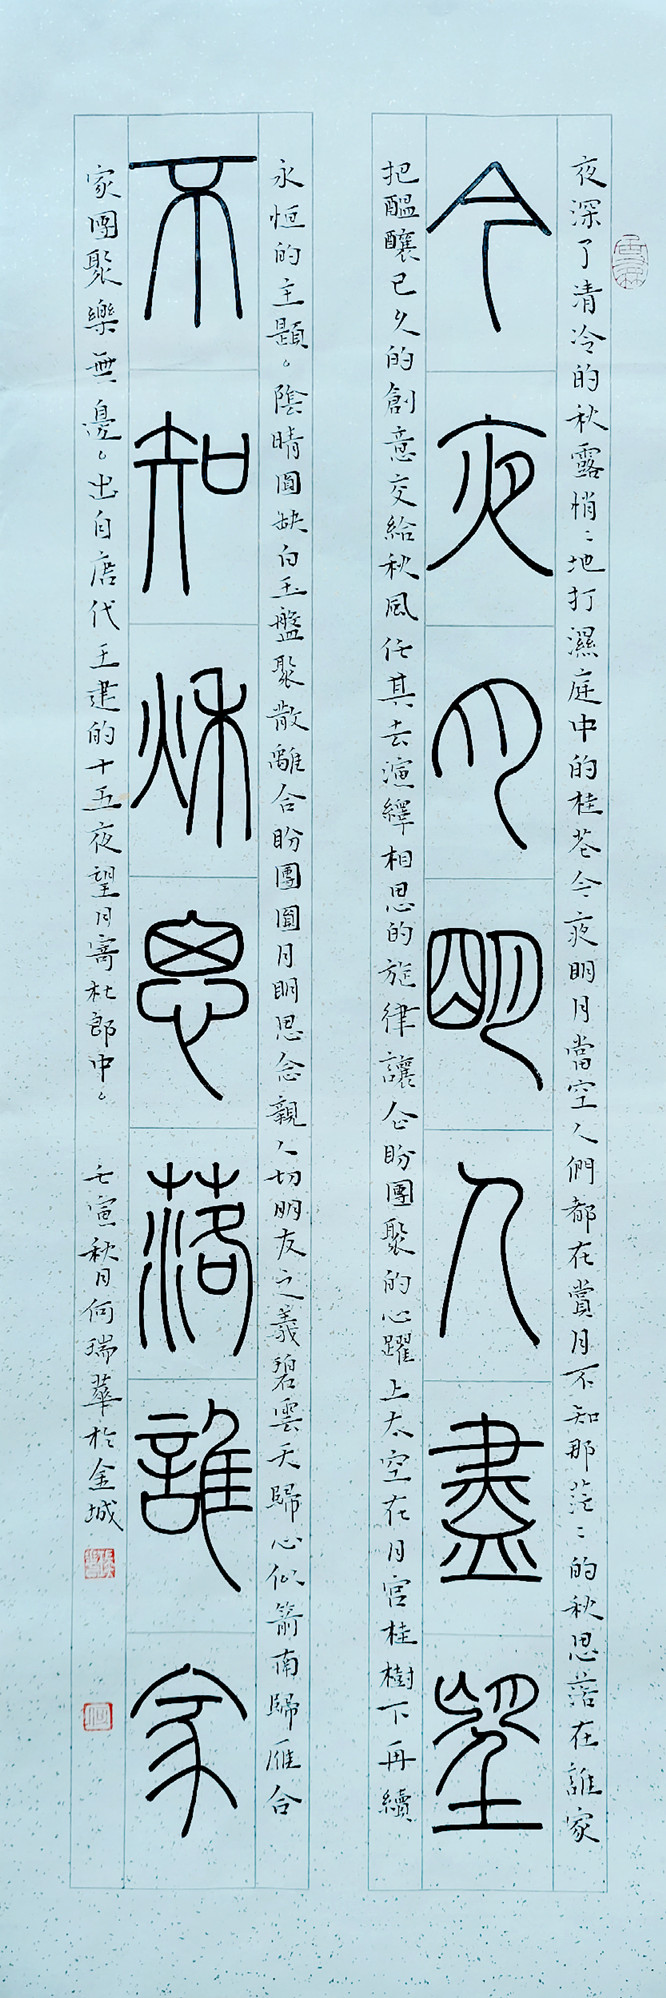 今夜月明人盡望
不知秋思落誰家
夜深了清冷的秋露悄悄地打濕庭中的桂花今夜明月當空人們都在賞月不知那茫茫的秋思落在誰家
把醞釀已久的創意交給秋風任其去演繹相思的旋律讓企盼團聚的心躍上太空在月宮桂樹下再續
永恒的主題。陰晴圓缺白玉盤聚散離合盼團圓月明思念親人切明友之義碧雲天歸心似箭南歸雁合
家團聚樂無邊。出自唐代王建的十五夜望月寄杜郎中。 壬寅秋月何瑞華於金城